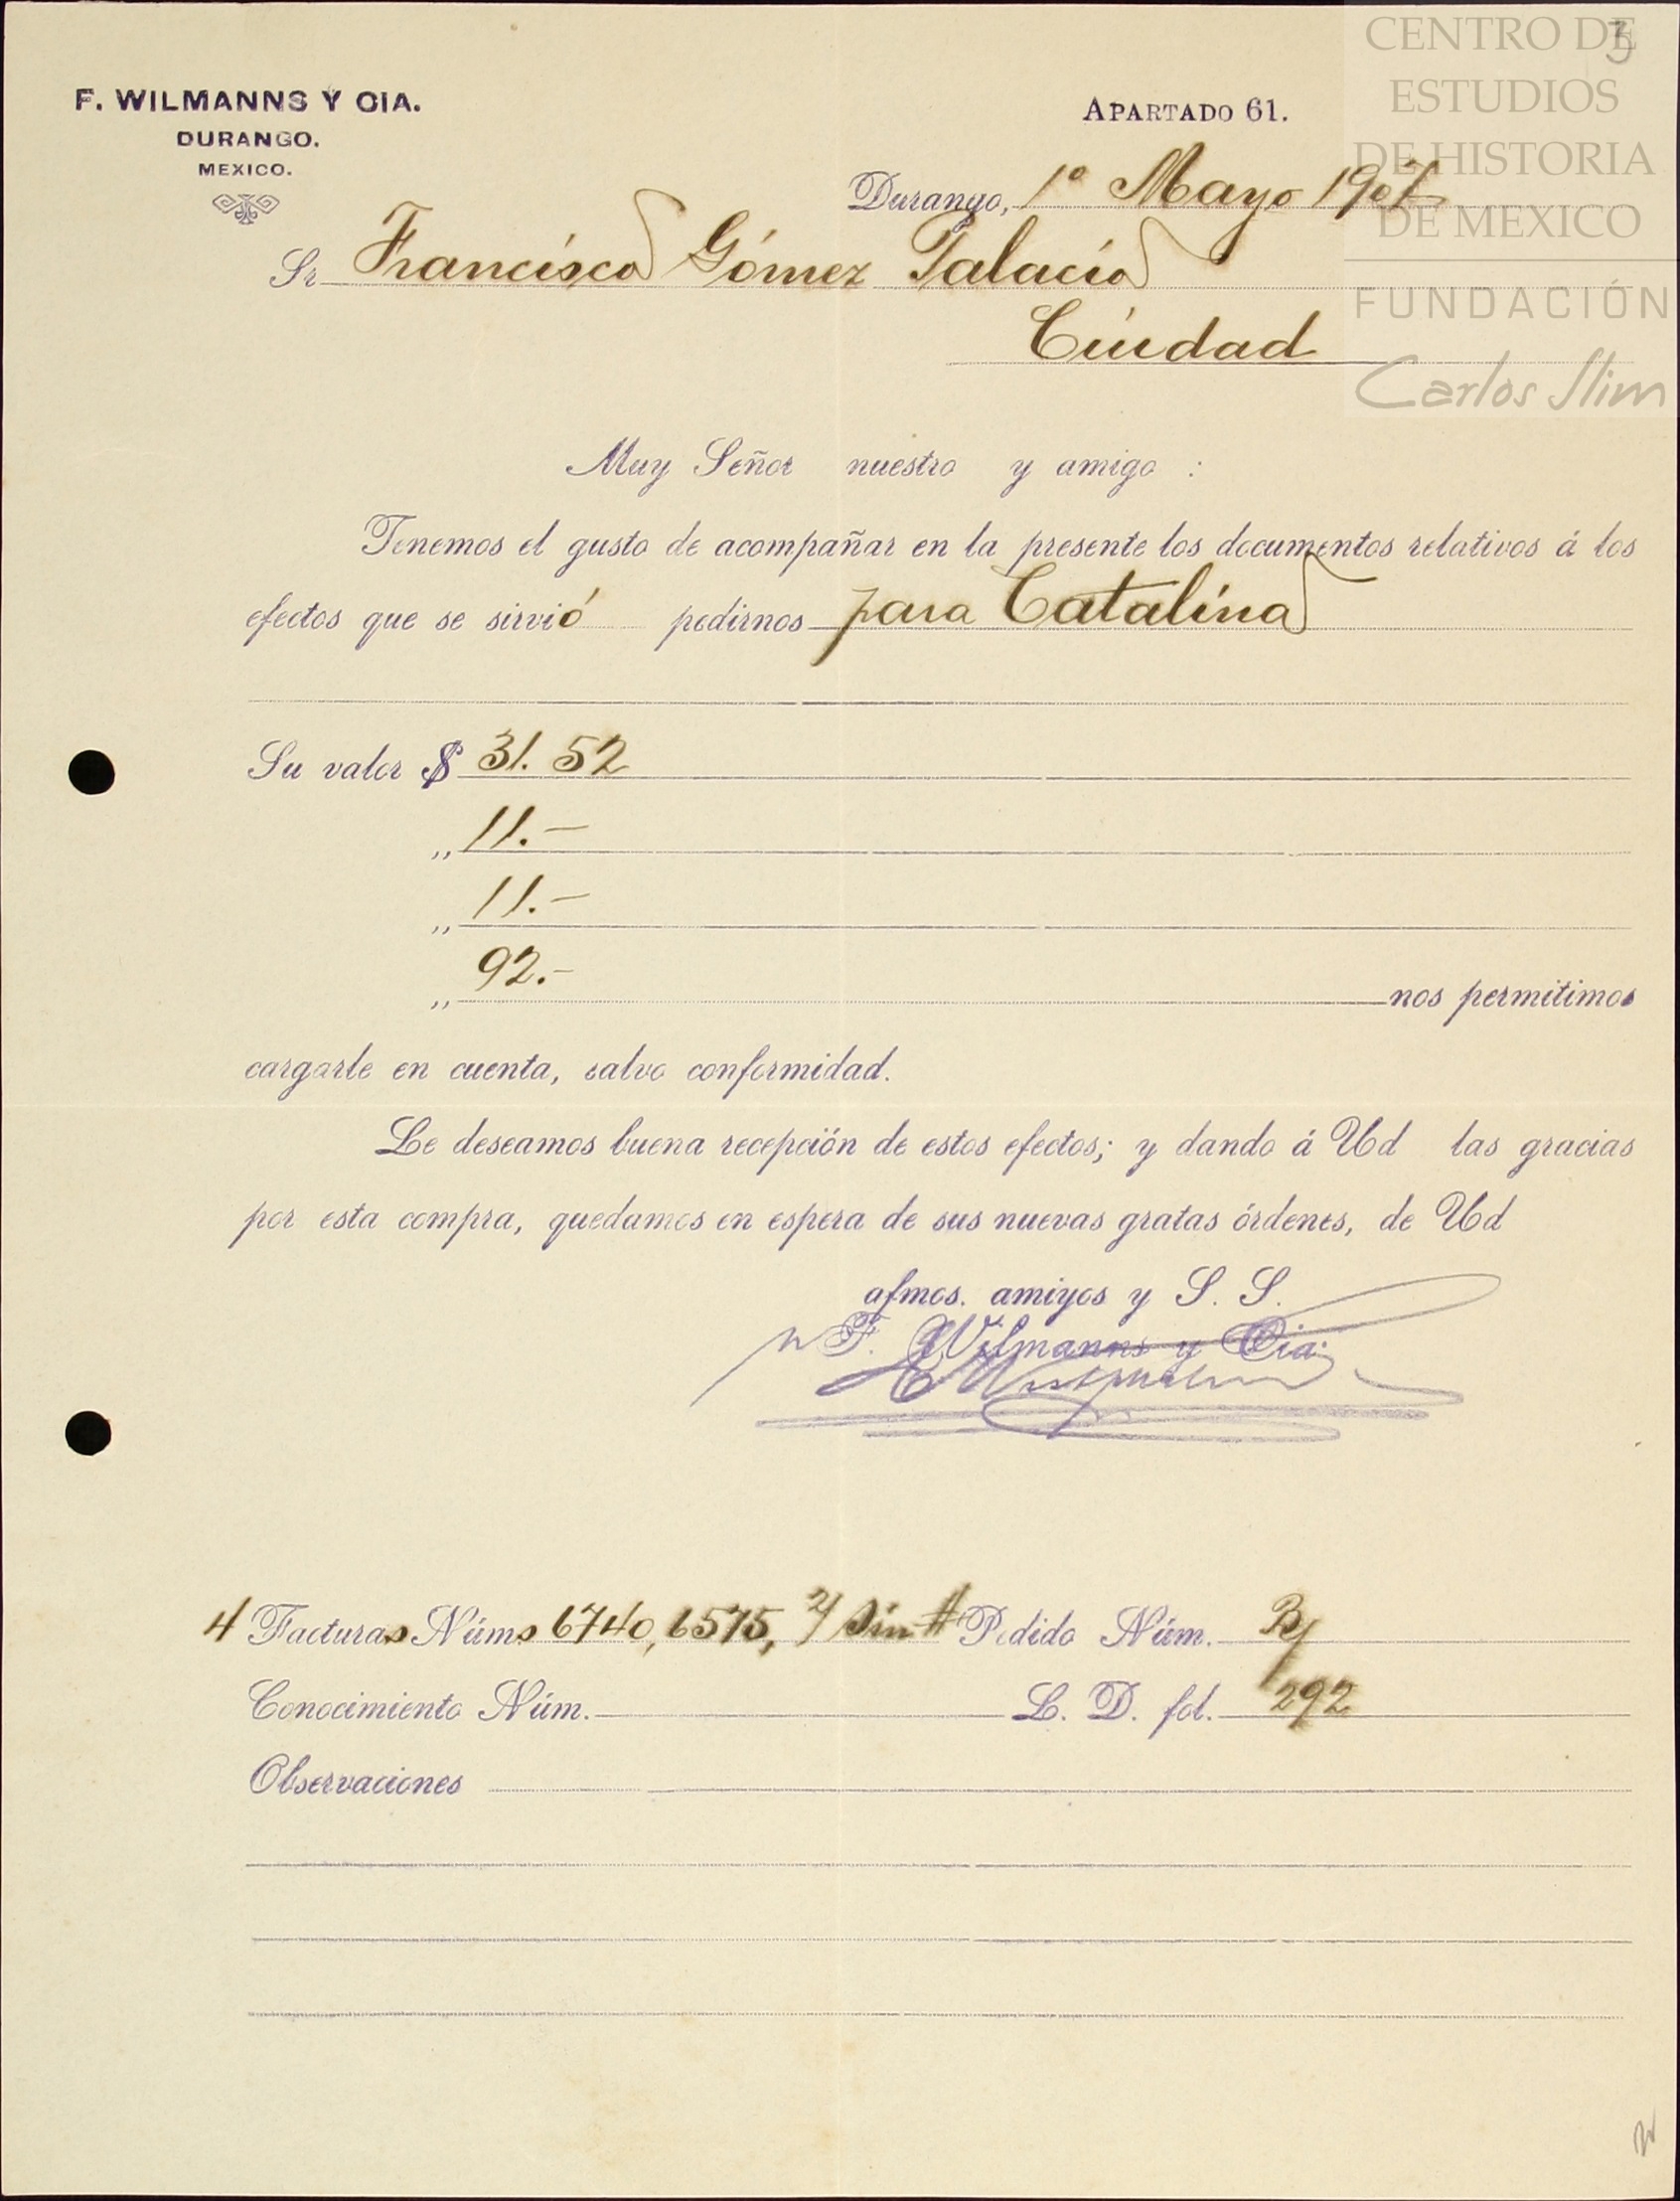 CENTRO DE
ESTUDIOS
DE HISTORIA
DE MEXICO
FUNDACIÓN
Carlos Slim
3
F. WILMANNS Y CIA.
DURANGO.
MEXICO.
APARTADO 61.
Durango, 1º Mayo 1907
Sr Francisco Gómez Palacio
Ciudad
Muy Señor nuestro y amigo :
Tenemos el gusto de acompañar en la presente los documentos relativos á los
efectos que se sirvió pedirnos para Catalina
Su valor $ 31. 52
,, 11.-
,, 11.-
,, 92.- nos permitimos
cargarle en cuenta, salvo conformidad.
Le deseamos buena recepción de estos efectos; y dando á Ud las gracias
por esta compra, quedamos en espera de sus nuevas gratas órdenes, de Ud
afmos. amigos y S. S.
F. Wilmanns y Cia.
4 Facturas Núms 6740, 6575, 2/ sin # Pedido Núm.
Conocimiento Núm. L. D. fol. 292
Observaciones